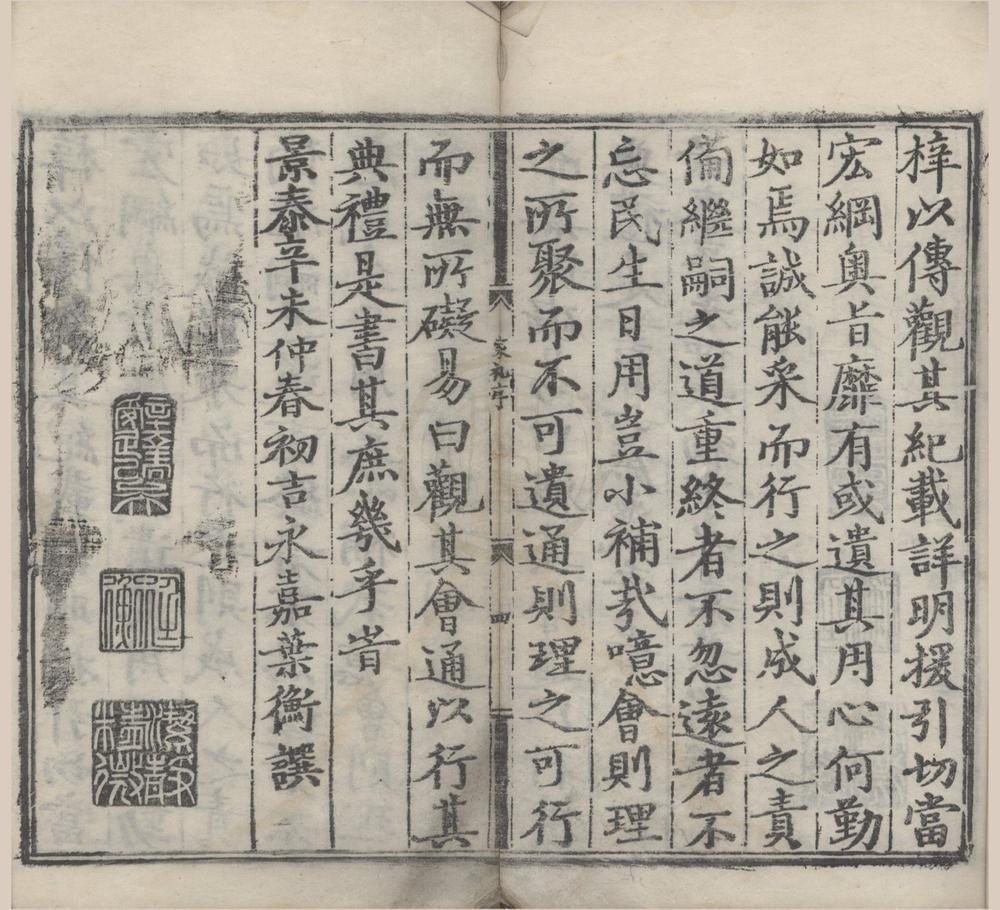 梓以傳觀其紀載詳明援引切當
宏綱奧旨靡有或遺其用心何勤
如焉誠能采而行之則成人之責
備繼嗣之道重終者不忽遠者不
忘民生日用豈小補㢤噫會則理
之所聚而不可遺通則理之可行
家礼序
四
而無所礙易曰觀其會通以行其
典禮是書其庶幾乎峕
景泰辛未仲春初吉永嘉葉衡譔